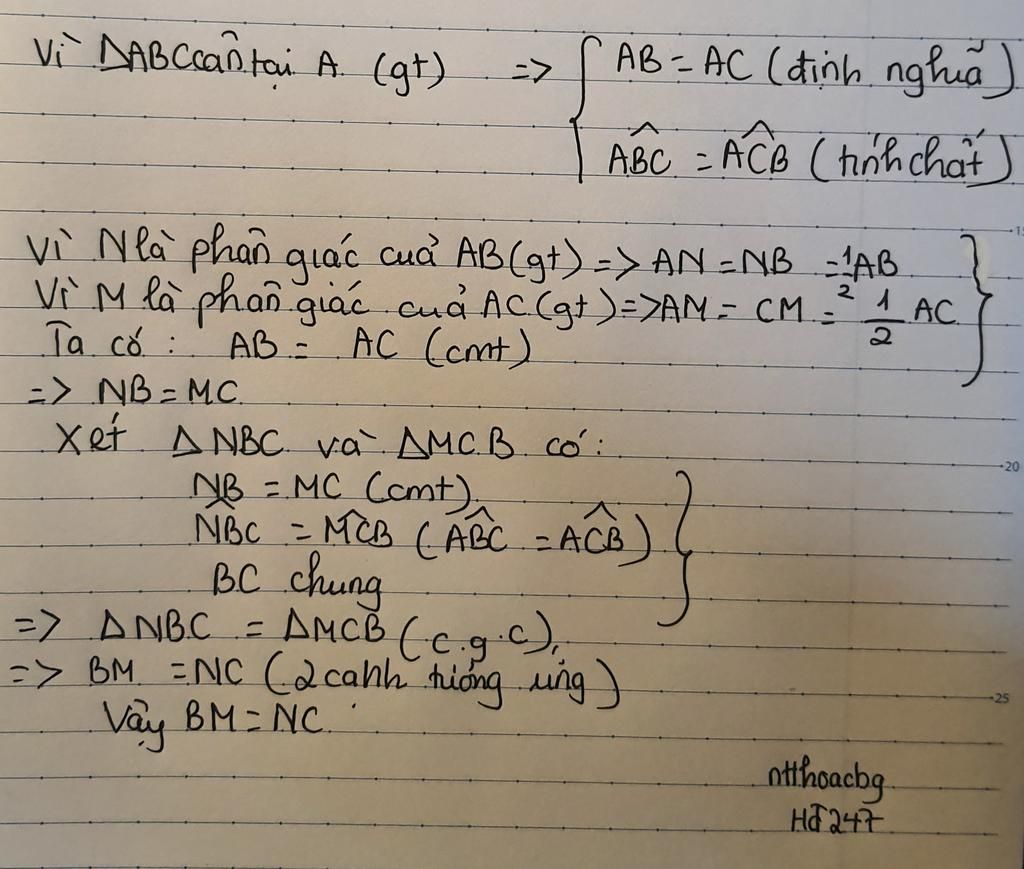 Vì ΔABC cân tại A (gt) => { AB = AC (định nghĩa)
ABC = ACB (tính chất)
Vì N là phân giác của AB (gt) => AN = NB = 1/2 AB
Vì M là phân giác của AC (gt) => AM = CM = 1/2 AC
Ta có : AB = AC (cmt)
=> NB = MC
Xét ΔNBC và ΔMCB có:
NB = MC (cmt)
NBC = MCB (ABC = ACB)
BC chung
=> ΔNBC = ΔMCB (c.g.c),
=> BM = NC (2 cạnh tương ứng)
Vậy BM = NC.
ntthoacbg
HĐ247
15
20
25